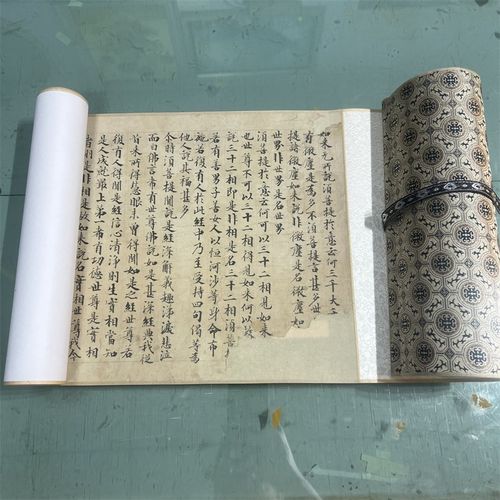 如來无所說須菩提於意云何三千大
有微塵是為多不須菩提言甚多世
提諸微塵如來說非微塵是名微塵如
世界非世界是名世界
須菩提於意云何可以三十二相見如來
也世尊不可以三十二相得見如來何以故
說三十二相即是非相是名三十二相須菩
若有善男子善女人以恒河沙等身命布
施若復有人於此經中乃至受持四句偈等為
他人說其福甚多
尒時須菩提聞說是經深解義趣涕淚悲泣
而白佛言希有世尊佛說如是甚深經典我從
昔來所得慧眼未曾得聞如是之經世尊若
復有人得聞是經信心清淨則生實相當知
是人成就最上第一希有功德世尊是實相
者則是非相是故如來說名實相世尊我今